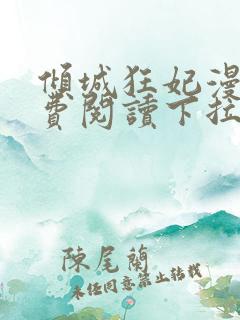 傾城狂妃漫
費閱讀下拉
陳尾蘭
未經同意禁止轉載